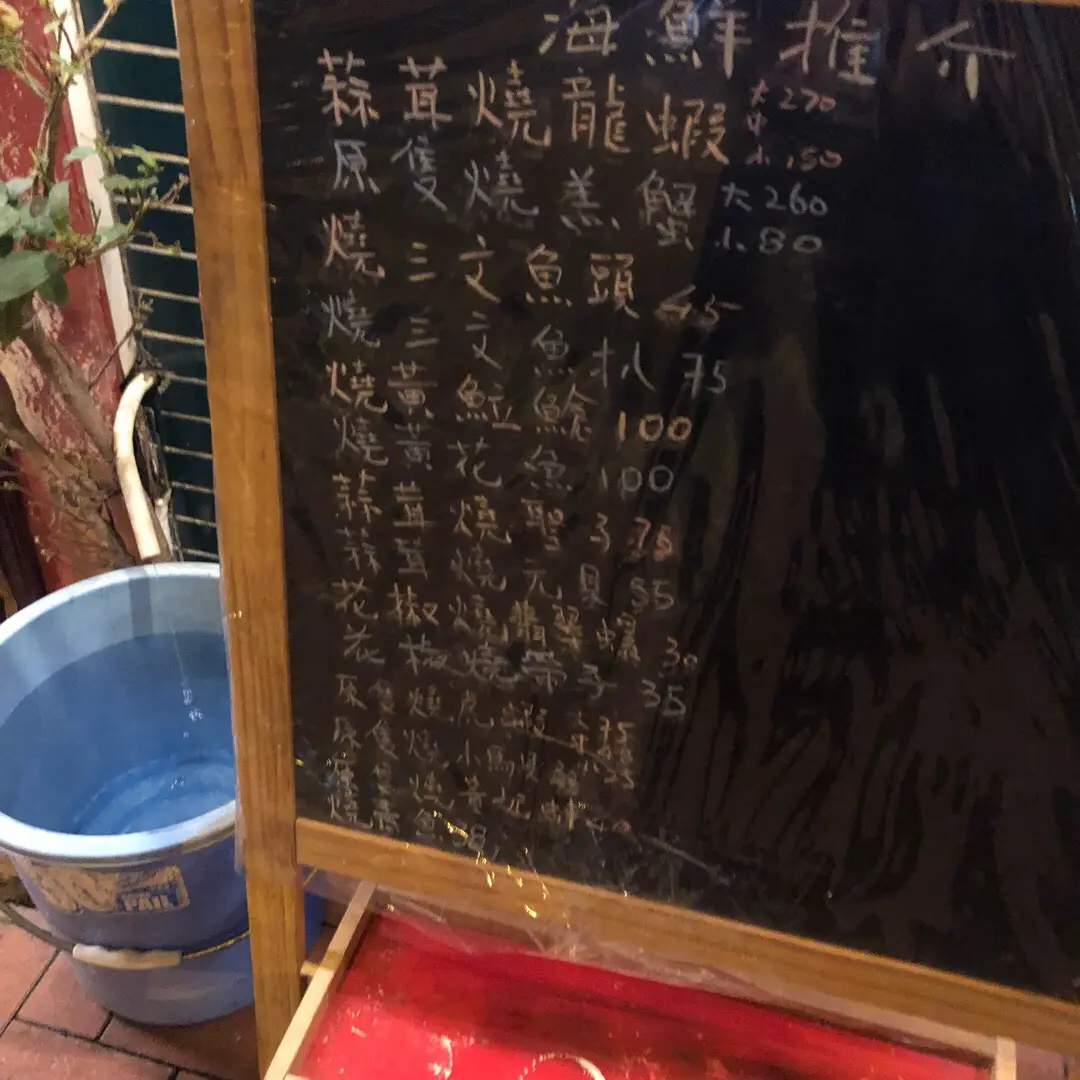 海鮮推介
蒜茸燒龍蝦 大270
中
小150
原隻燒羔蟹 大260
小80
燒三文魚頭 45
燒三文魚扒 75
燒黃魚立魚倉 100
燒黃花魚 100
蒜茸燒聖子 75
蒜茸燒元貝 55
花椒燒翡翠螺 30
花椒燒帶子 35
原隻燒虎蝦
原隻燒小馬
燒 魚 38
PAIL